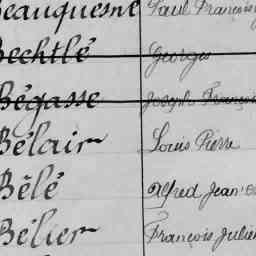 Beauquesne Paul François
Bechtlé Georges
Bégasse Joseph François
Bélair Louis Pierre
Bélé Alfred Jean
Bélier François Julien